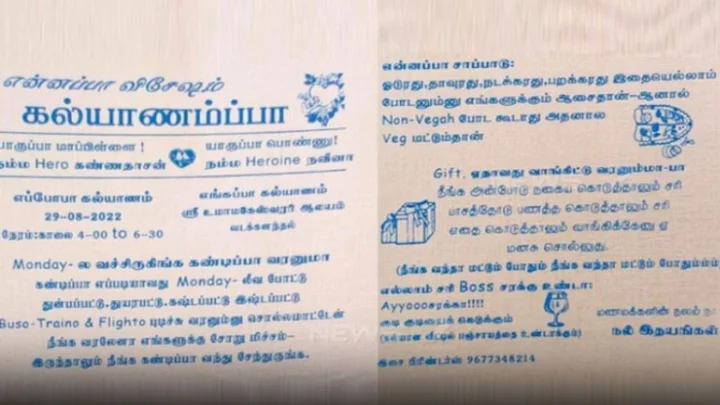 என்னப்பா விசேஷம்
கல்யாணம்ப்பா
யாருப்பா மாப்பிள்ளை !
நம்ம Hero கண்ணதாசன்
யாருப்பா பொண்ணு!
நம்ம Heroine நவீனா
எப்போபா கல்யாணம்
29-08-2022
நேரம்:காலை 4-00 to 6-30
எங்கப்பா கல்யாணம்
ஸ்ரீ உமாமகேஸ்வரர் ஆலயம்
வடக்களந்தல்
Monday- ல வச்சிருகிங்க கண்டிப்பா வரனுமா
கண்டிப்பா எப்படியாவது Monday- லீவ போட்டு
துன்பப்பட்டு.துயரபட்டு.கஷ்டப்பட்டு இஷ்டப்பட்டு
Buso-Traino & Flighto புடிச்சு வரனும்னு சொல்லமாட்டேன்
நீங்க வரலேனா எங்களுக்கு சோறு மிச்சம்-
இருந்தாலும் நீங்க கண்டிப்பா வந்து சேந்துருங்க.
என்னப்பா சாப்பாடு:
ஓடுரது,தாவுரது,நடக்கரது,பறக்கரது இதையெல்லாம்
போடனும்னு எங்களுக்கும் ஆசைதான்-ஆனால்
Non-Vegah போட கூடாது அதனால
Veg மட்டும்தான்
Gift, ஏதாவது வாங்கிட்டு வரனும்மா-பா
நீங்க அன்போடு நகைய கொடுத்தாலும் சரி
பாசத்தோடு பணத்த கொடுத்தாலும் சரி
எதை கொடுத்தாலும் வாங்கிக்கேனு ஏ
மனசு சொல்லுது.
(நீங்க வந்தா மட்டும் போதும் நீங்க வந்தா மட்டும் போதும்ம்ம்
எல்லாம் சரி Boss சரக்கு உண்டா:
Ayyoooசரக்கா!!!!
குடி குடியைக் கெடுக்கும்
மணமக்களின் நலம் நா
நல் இதயங்கள்
இசை பிரிண்டர்ஸ் 9677348214